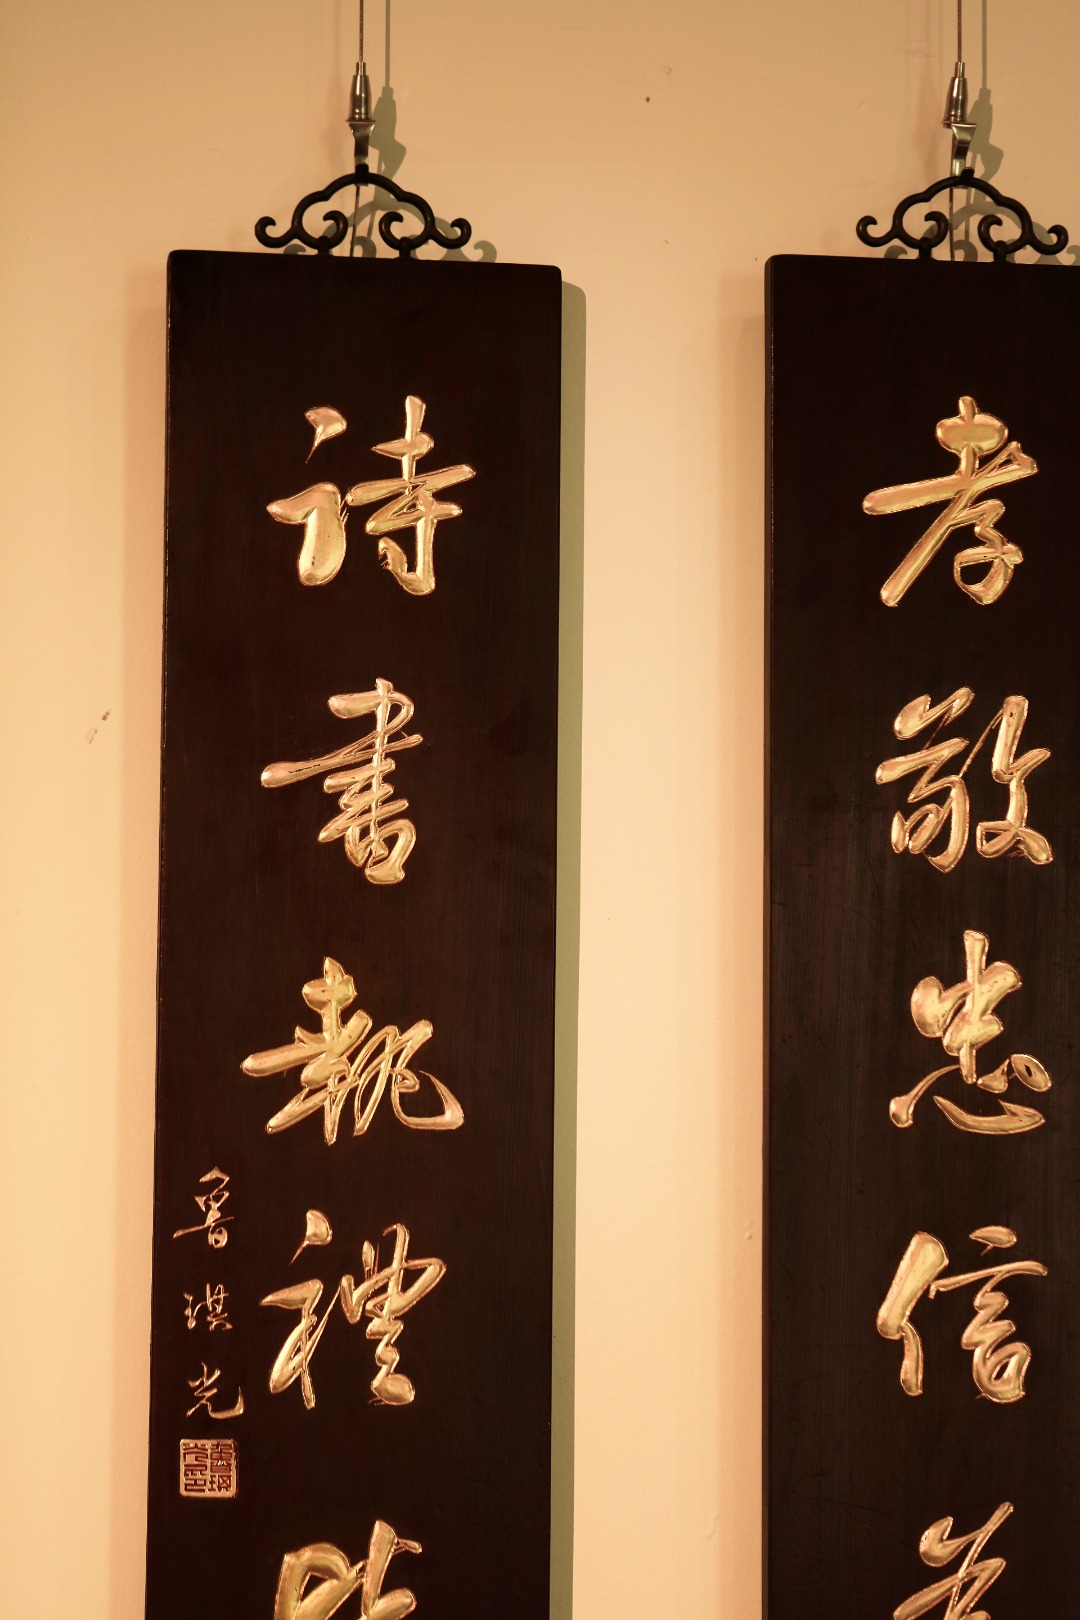 孝敬忠信為
詩書執禮時
魯琪光